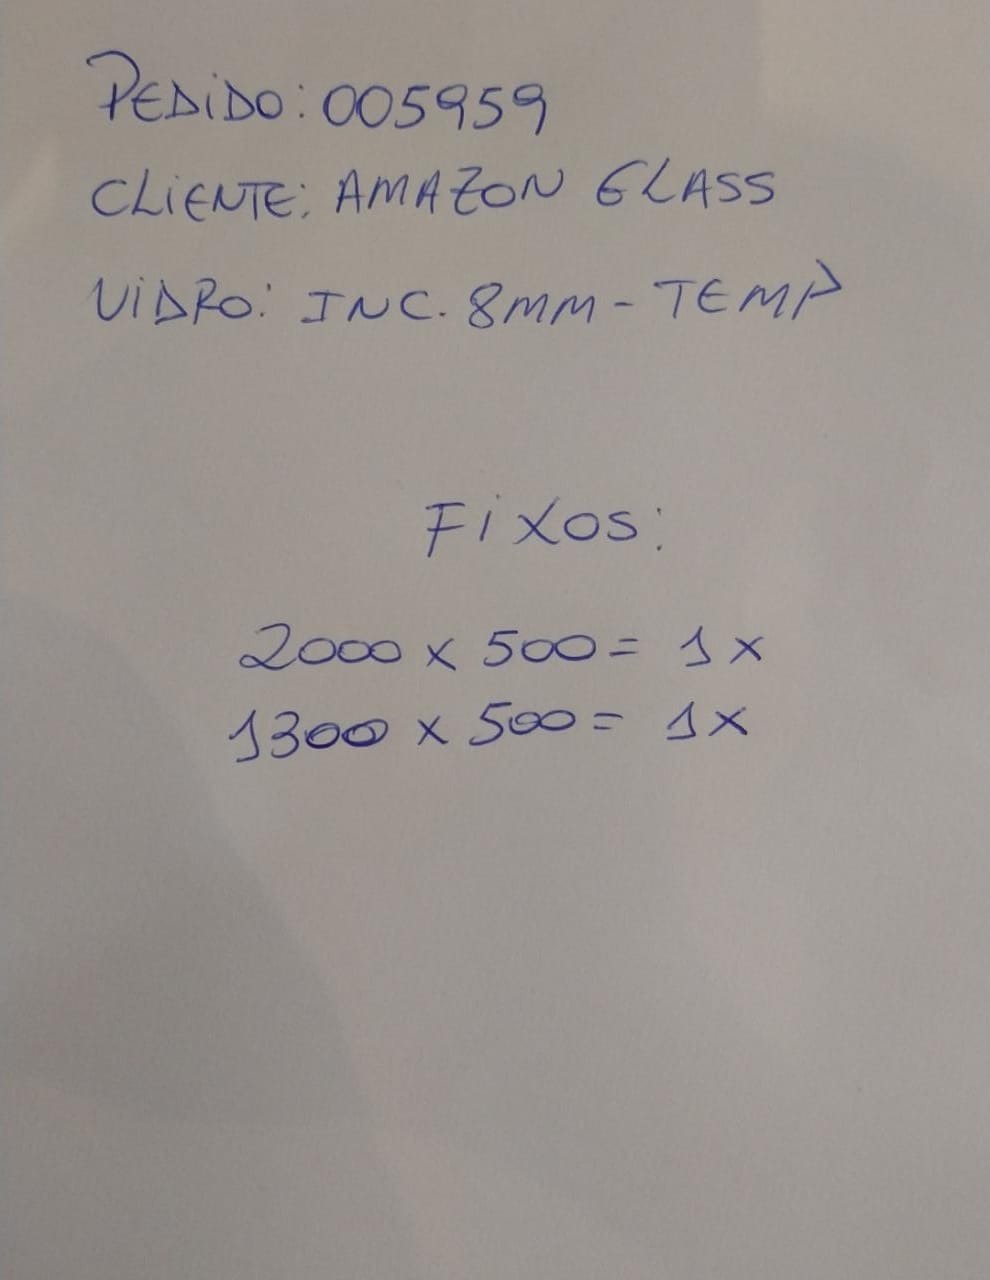 PEDIDO: 005959
CLIENTE: AMAZON GLASS
VIDRO: INC. 8MM - TEMP
FIXOS:
2000 x 500 = 1x
1300 x 500 = 1x